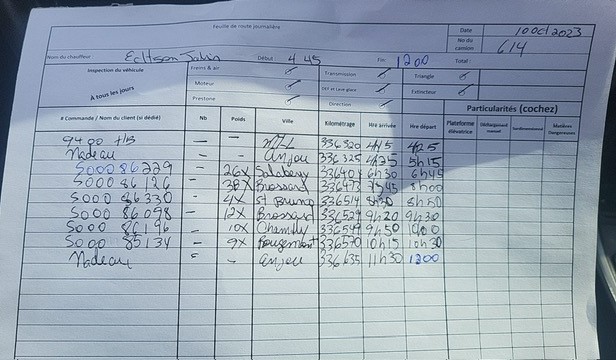 Feuille de route journalière
Date 10 Oct 2023
No du camion 614
Nom du chauffeur Début 4 45 Fin: 1200 Total:
Inspection du véhicule Freins & air Transmission Triangle
À tous les jours Moteur DEF et Lave glace Extincteur
Prestone Direction
Particularités (cochez)
# Commande / Nom du client (si dédié) Nb Poids Ville Kilométrage Hre arrivée Hre départ Plateforme élévatrice Déchargement manuel Matières Dangereuses
9400 - - MTL 336320 445 425
Nadeau - - Anjou 336325 4h25 5h15
5000 86229 - 26X Salabery 336404 6h30 6h45
5000 86126 - 38X Brossard 336473 7h45 8h00
5000 86330 - 4X St Bruno 336514 8h30 8h50
5000 86098 - 12X Brossard 336529 9h20 9h30
5000 86196 - 10X Chambly 336549 9h50 1000
5000 85134 - 9X Rougemont 336570 10h15 10h30
Nadeau - Anjou 336635 11h30 1200